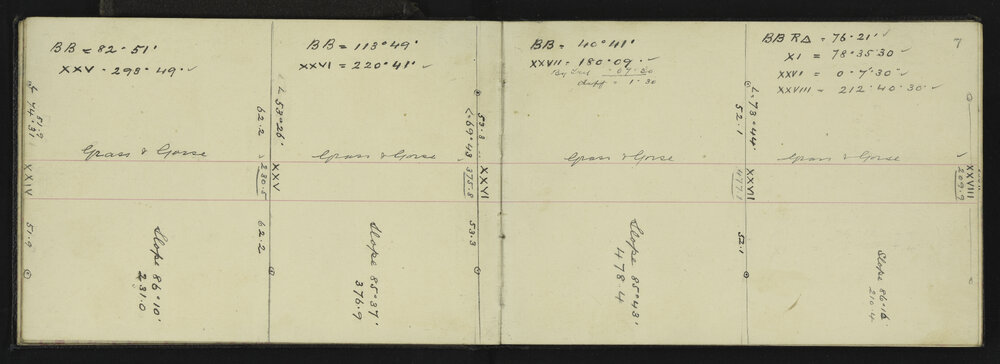 BB = 82° 51'
XXV - 298° 49'
∠ 74° 37'
51.9
XXIV
51.9
Grass & Gorse
Slope 86° 10'
231.0
BB = 113° 49'
XXVI = 220° 41'
∠ 53° 26'
62.2
230.5
XXV
62.2
Grass & Gorse
Slope 85° 37'
376.9
53.3
∠ 69° 43'
375.8
XXVI
53.3
BB = 40° 41'
XXVII = 180° 09'
07.30
1.30
Grass & Gorse
Slope 85° 43'
478.4
∠ 73° 44'
52.1
477.1
XXVII
52.1
BB R△ = 76° 21'
XI = 78° 35' 30
XXVI = 0° 7' 30
XXVIII = 212° 40' 30
7
Grass & Gorse
XXVIII
209.9
Slope 86°
210.4